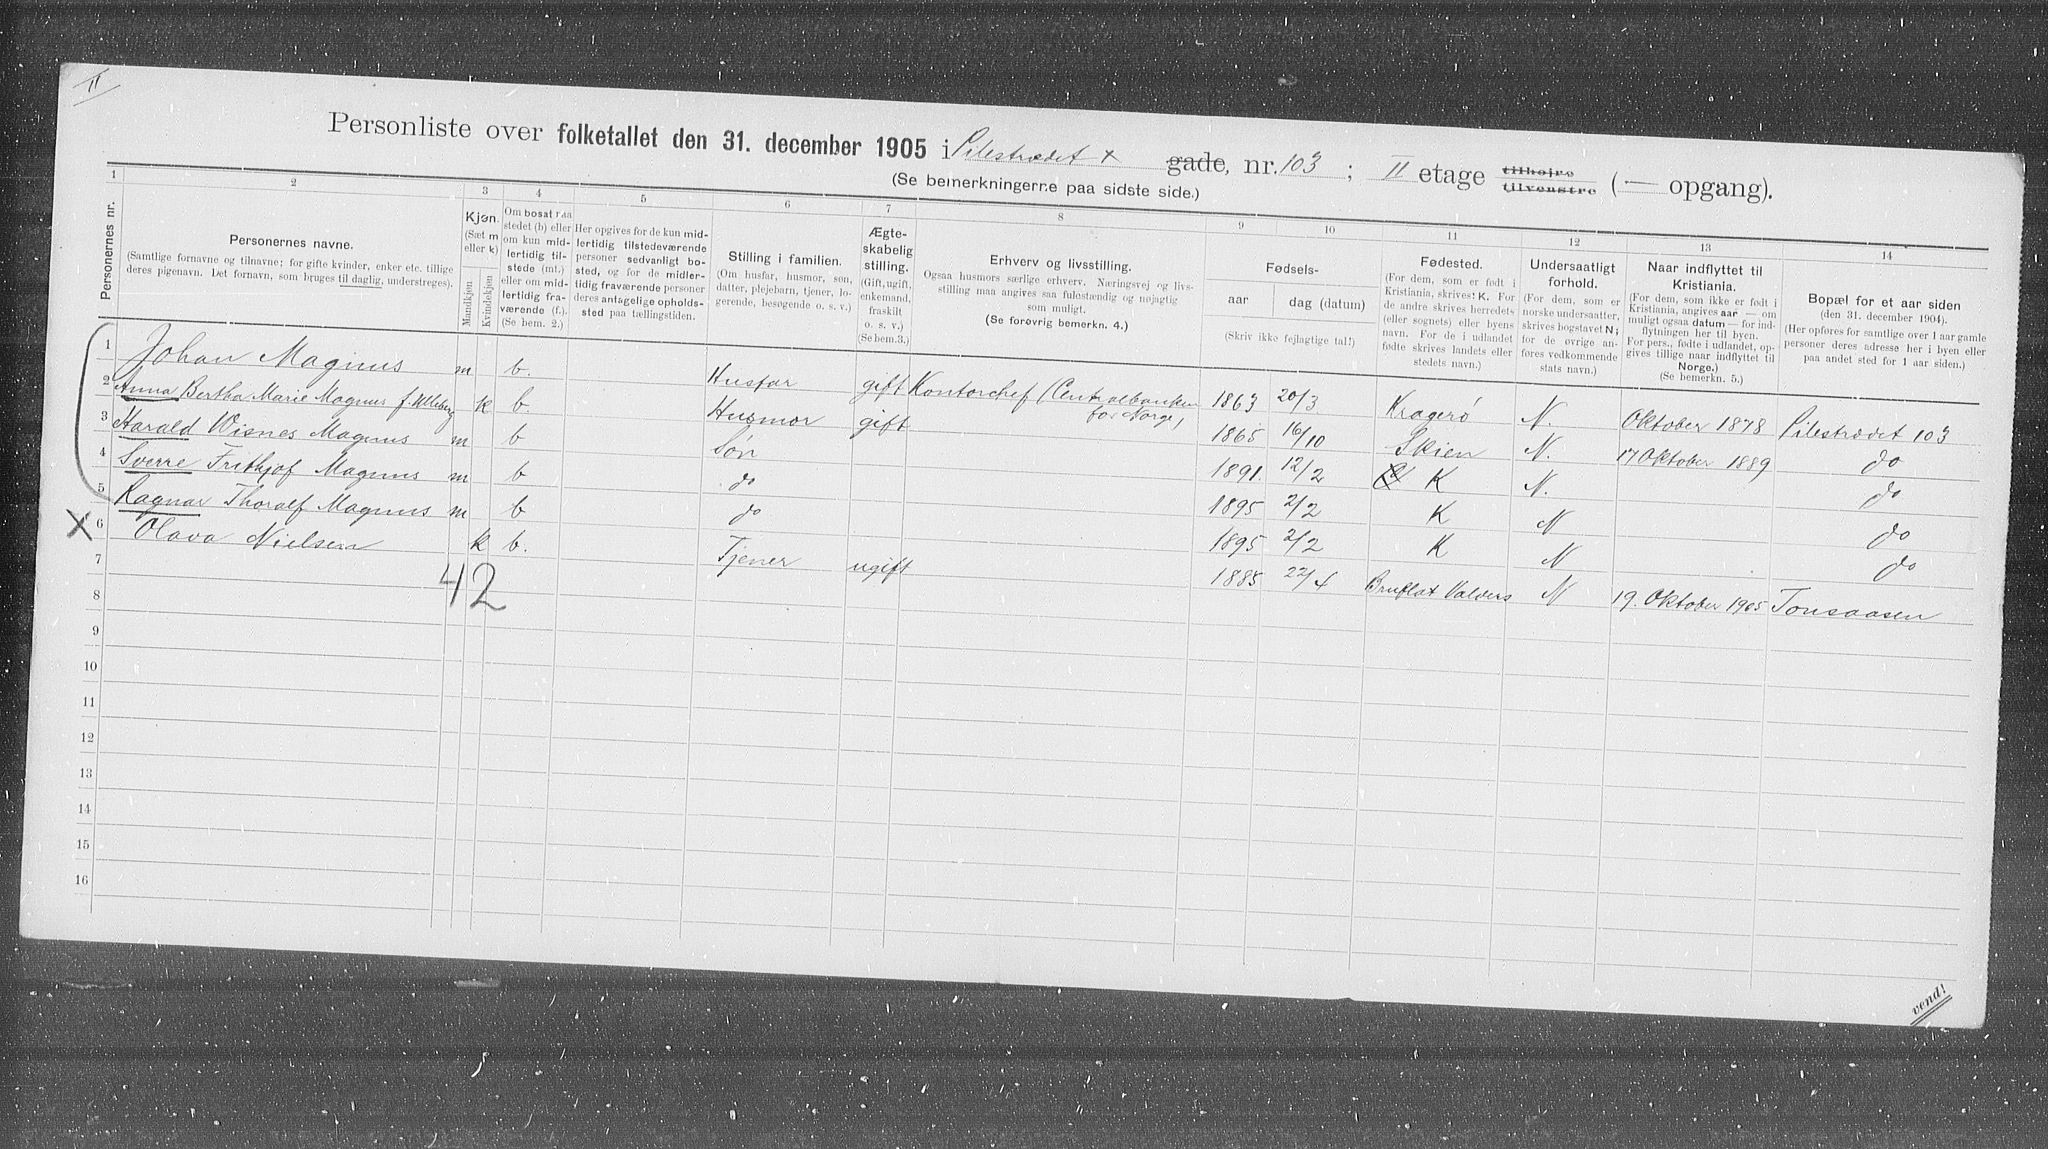 II
Personliste over folketallet den 31. december 1905 i Pilestrædet + gade, nr. 103 ; II etage tilhøire tilvenstre (— opgang).
(Se bemerkningerne paa sidste side.)
1 2 3 4 5 6 7 8 9 10 11 12 13 14
Personernes nr.
Personernes navne.
(Samtlige fornavne og tilnavne; for gifte kvinder, enker etc. tillige
deres pigenavn. Det fornavn, som bruges til daglig, understreges).
Kjøn.
(Sæt m
eller k)
Mandkjøn
Kvindekjøn
Om bosat paa
stedet (b) eller
om kun mid-
lertidig til-
stede (mt.)
eller om mid-
lertidig fra-
værende (f.).
(Se bem. 2.)
Her opgives for de kun mid-
lertidig tilstedeværende
personer sedvanligt bo-
sted, og for de midler-
tidig fraværende personer
deres antagelige opholds-
sted paa tællingstiden.
Stilling i familien.
(Om husfar, husmor, søn,
datter, plejebarn, tjener, lo-
gerende, besøgende o. s. v.)
Ægte-
skabelig
stilling.
(Gift, ugift,
enkemand,
fraskilt
o. s. v.)
(Se bem. 3.)
Erhverv og livsstilling.
Ogsaa husmors særlige erhverv. Næringsvej og livs-
stilling maa angives saa fulostændig og nøjagtig
som muligt.
(Se forøvrig bemerkn. 4.)
Fødsels-
aar dag (datum)
(Skriv ikke fejlagtige tal!)
Fødested.
(For dem, som er født i
Kristiania, skrives: K. For
de andre skrives herredets
(eller sognets) eller byens
navn. For de i udlandet
fødte skrives landets eller
stedets navn.)
Undersaatligt
forhold.
(For dem, som er
norske undersaatter,
skrives bogstavet N;
for de øvrige an-
føres vedkommende
stats navn.)
Naar indflyttet til
Kristiania.
(For dem, som ikke er født i
Kristiania, angives aar — om
muligt ogsaa datum — for ind-
flytningen her til byen.
For pers., fødte i udlandet, op-
gives tillige naar indflyttet til
Norge.)
(Se bemerkn. 5.)
Bopæl for et aar siden
(den 31. december 1904).
(Her opføres for samtlige over 1 aar gamle
personer deres adresse her i byen eller
paa andet sted for 1 aar siden.)
1 Johan Magnus m b. Husfar gift Kontorchef (Centralbanken for Norge) 1863 20/3 Kragerø N. Oktober 1878 Pilestrædet 103
2 Anna Bertha Marie Magnus f. Ulleberg k b. Husmor gift 1865 16/10 Skien N. 17 Oktober 1889 do
3 Harald Wisnes Magnus m b Søn 1891. 12/2 K N. do
4 Sverre Frithjof Magnus m b do 1895 2/2 K N do
5 Ragnar Thoralf Magnus m b do 1895 2/2 K N do
X 6 Olava Nielsen k b. Tjener ugift 1885 22/4 Bruflat Valders N 19. Oktober 1905 Tonsaasen
7
42
8
9
10
11
12
13
14
15
16
vend!